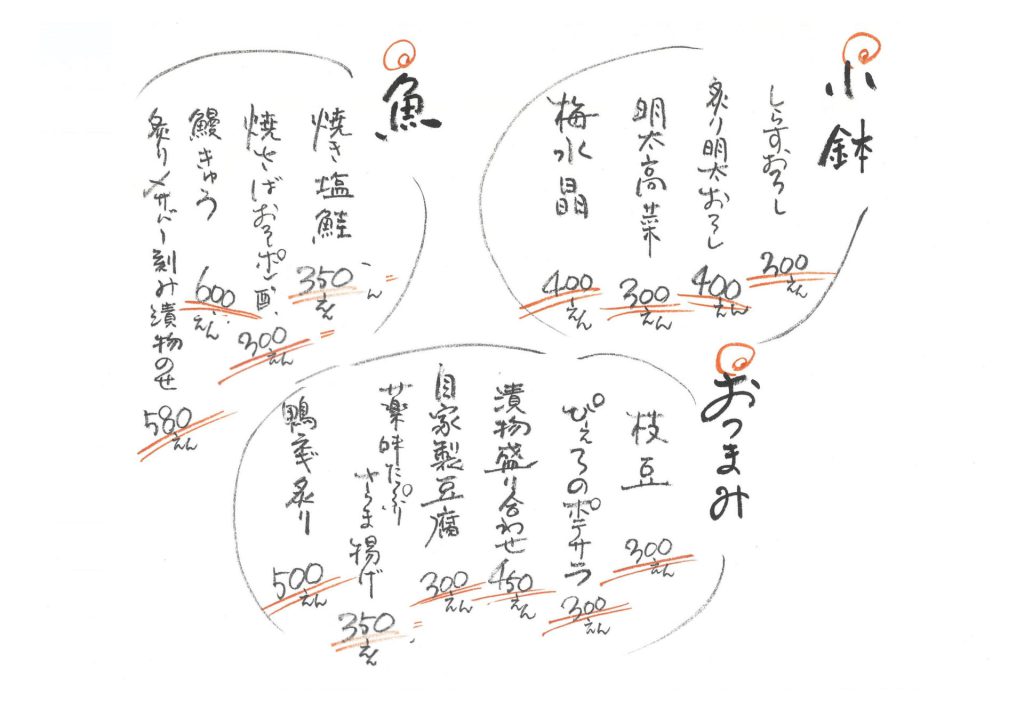 小鉢
しらすおろし
300えん
炙り明太おろし
400えん
明太高菜
300えん
梅水晶
400えん
魚
焼き塩鮭
350えん
焼さばおろしポン酢
300えん
鰻きゅう
600えん
炙り〆サバ刻み漬物のせ
580えん
おつまみ
枝豆
300えん
ぴえろのポテサラ
300えん
漬物盛り合わせ
450えん
自家製豆腐
300えん
薬味たっぷり
さつま揚げ
350えん
鴨炙り
500えん